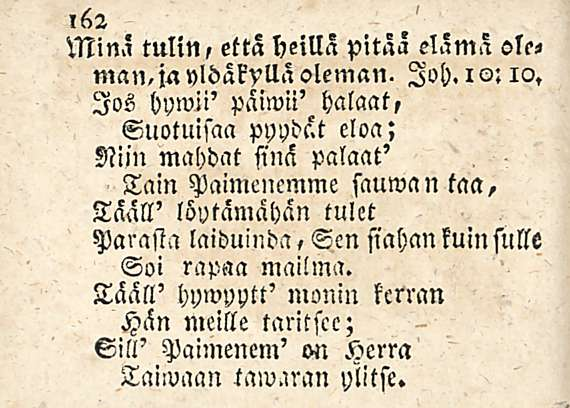 162
Minä tulin, että heillä pitää elämä ole-
man, ja yldäkyllä oleman. Joh. 10: 10.
Jos hywii' päiwii' halaat,
Suotuisaa pyydät eloa;
Niin mahdat sinä palaat'
Tain Paimenemme sauwan taa,
Tääll' löytämähän tulet
Parasta laiduinda, Sen siahan kuin sulle
Soi rapaa mailma.
Tääll' hywyytt' monin kerran
Hän meille taritsee;
Sill' Paimenem' on Herra
Taiwaan tawaran ylitse.